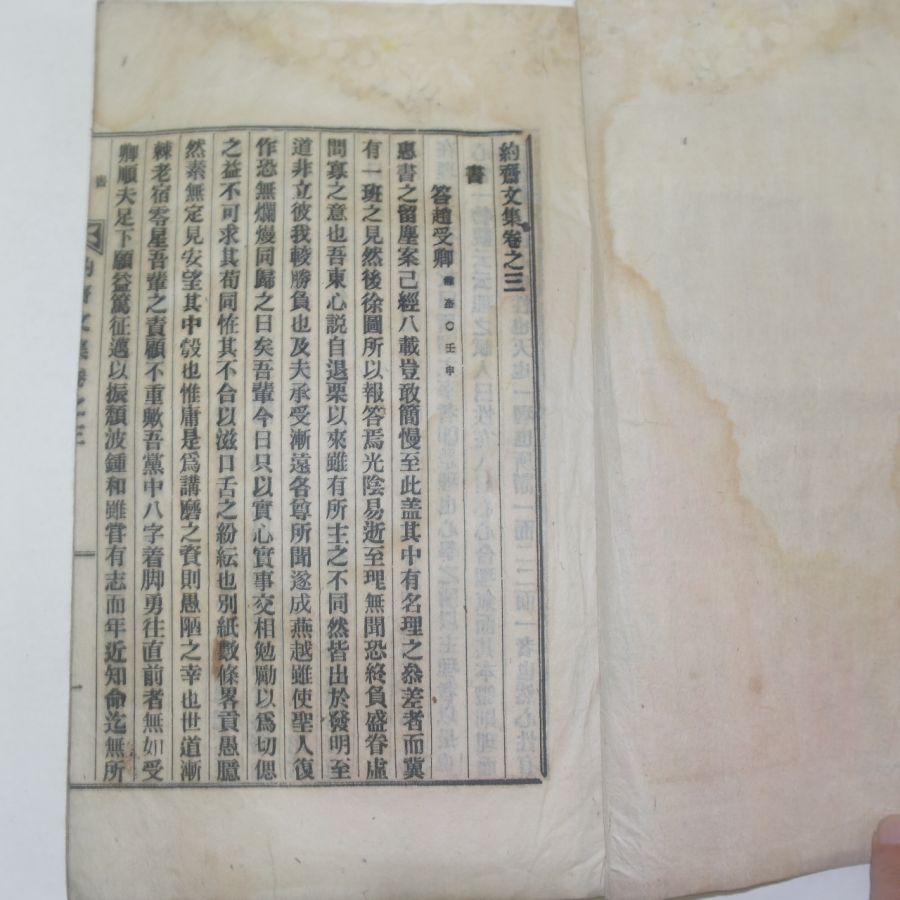 約齋文集卷之三
書
答趙受卿 在〇壬申
惠書之留塵案已經八載豈敢簡慢至此盖其中有名理之叅差者而冀
有一班之見然後徐圖所以報答焉光陰易逝至理無聞恐終負盛眷虛
問寡之意也吾東心說自退栗以來雖有所主之不同然皆出於發明至
道非立彼我較勝負也及夫承受漸遠各尊所聞遂成燕越雖使聖人復
作恐無爛熳同歸之日矣吾輩今日只以實心實事交相勉勵以爲切偲
之益不可求其苟同恠其不合以滋口舌之紛紜也別紙數條畧貢愚臆
然素無定見安望其中彀也惟庸是爲講磨之資則愚陋之幸也世道漸
棘老宿零星吾輩之責顧不重歟吾黨中八字着脚勇往直前者無如受
卿順夫足下願益篤征邁以振頹波鍾和雖甞有志而年近知命迄無所
書
約齋文集卷之三
一